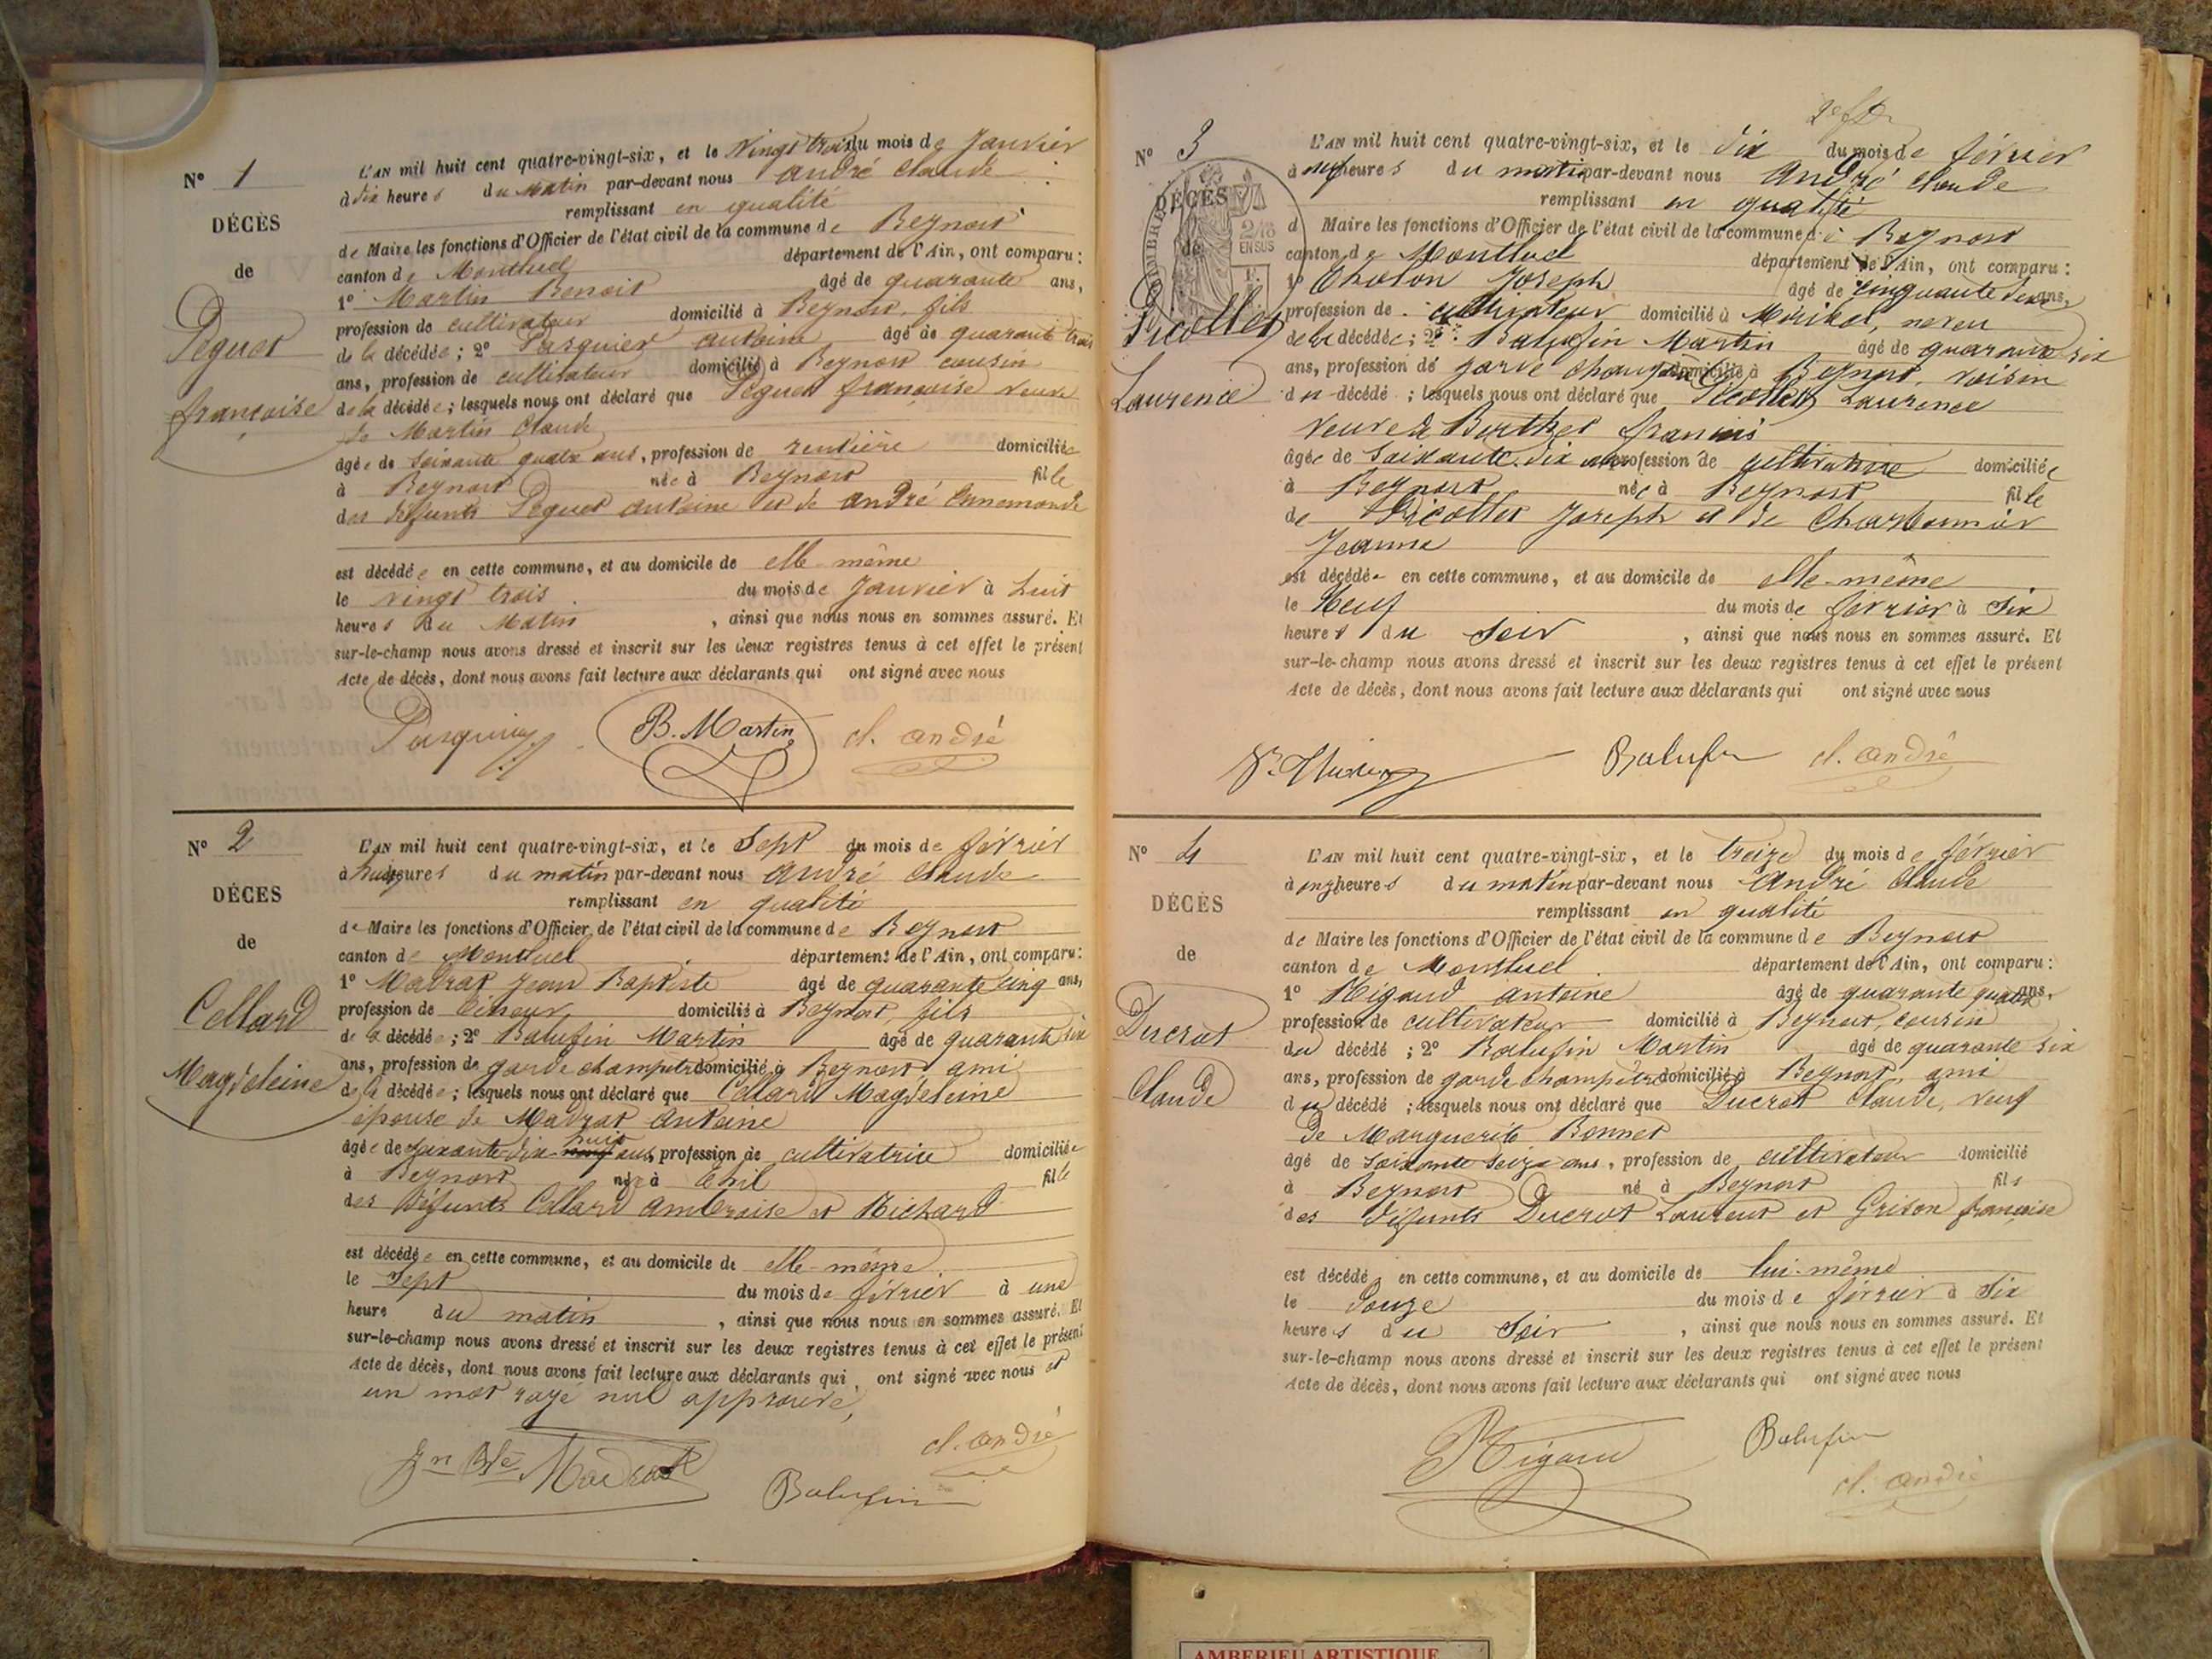 N° 1
DÉCÈS
de
Peguet
françoise
L'AN mil huit cent quatre-vingt-six, et le vingt trois du mois de Janvier
à dix heures du matin par-devant nous André Claude
remplissant en qualité
de Maire les fonctions d'Officier de l'état civil de la commune de Beynost
canton de Montluel département de l'Ain, ont comparu :
1° Martin Benoit âgé de quarante ans,
profession de cultivateur domicilié à Beynost, fils
de la décédée ; 2° Pasquier Antoine âgé de quarante trois
ans, profession de cultivateur domicilié à Beynost cousin
de la décédée ; lesquels nous ont déclaré que Peguet françoise veuve
de Martin Claude
âgée de soixante quatre ans, profession de rentière domiciliée
à Beynost née à Beynost fille
des défunts Peguet Antoine et de André Ennemonde
est décédée en cette commune, et au domicile de elle-même
le vingt trois du mois de Janvier à huit
heures du Matin , ainsi que nous nous en sommes assuré. Et
sur-le-champ nous avons dressé et inscrit sur les deux registres tenus à cet effet le présent
Acte de décès, dont nous avons fait lecture aux déclarants qui ont signé avec nous
Pasquier B. Martin cl. andré
N° 2
DÉCÈS
de
Cellard
Magdeleine
L'AN mil huit cent quatre-vingt-six, et le Sept du mois de février
à huit heures du matin par-devant nous André Claude
remplissant en qualité
de Maire les fonctions d'Officier de l'état civil de la commune de Beynost
canton de Montluel département de l'Ain, ont comparu :
1° Madrat Jean Baptiste âgé de quarante cinq ans,
profession de domicilié à Beynost, fils
de la décédée ; 2° Balufin Martin âgé de quarante six
ans, profession de garde champêtre domicilié à Beynost ami
de la décédée ; lesquels nous ont déclaré que Cellard Magdeleine
épouse de Madrat Antoine
âgée de soixante dix huit ans, profession de cultivatrice domiciliée
à Beynost née à fille
des défunts Cellard Ambroise et Richard
est décédée en cette commune, et au domicile de elle-même
le Sept du mois de février à une
heure du matin , ainsi que nous nous en sommes assuré. Et
sur-le-champ nous avons dressé et inscrit sur les deux registres tenus à cet effet le présent
Acte de décès, dont nous avons fait lecture aux déclarants qui ont signé avec nous et
un mot rayé nul approuvé,
Jn Bte Madrat Balufin cl. andré
N° 3
DÉCÈS
de
Picollet
Laurence
L'AN mil huit cent quatre-vingt-six, et le dix du mois de février
à neuf heures du matin par-devant nous André Claude
remplissant en qualité
d Maire les fonctions d'Officier de l'état civil de la commune de Beynost
canton de Montluel département de l'Ain, ont comparu :
1° Joseph âgé de cinquante deux ans,
profession de cultivateur domicilié à Miribel, neveu
de la décédée ; 2° Balufin Martin âgé de quarante six
ans, profession de garde champêtre domicilié à Beynost, voisin
du décédé ; lesquels nous ont déclaré que Picollet Laurence
veuve de Berthet françois
âgée de soixante dix ans profession de cultivatrice domiciliée
à Beynost née à Beynost fille
de Picollet Joseph et de Charbonnier
Jeanne
est décédée en cette commune, et au domicile de elle-même
le Neuf du mois de février à Six
heures du Soir , ainsi que nous nous en sommes assuré. Et
sur-le-champ nous avons dressé et inscrit sur les deux registres tenus à cet effet le présent
Acte de décès, dont nous avons fait lecture aux déclarants qui ont signé avec nous
Balufin cl. andré
N° 4
DÉCÈS
de
Ducrot
Claude
L'AN mil huit cent quatre-vingt-six, et le treize du mois de février
à onze heures du matin par-devant nous André Claude
remplissant en qualité
de Maire les fonctions d'Officier de l'état civil de la commune de Beynost
canton de Montluel département de l'Ain, ont comparu :
1° Rigaud Antoine âgé de quarante quatre ans,
profession de cultivateur domicilié à Beynost, cousin
du décédé ; 2° Balufin Martin âgé de quarante six
ans, profession de garde champêtre domicilié à Beynost, ami
du décédé ; lesquels nous ont déclaré que Ducrot Claude, veuf
de Marguerite Bonnet
âgé de soixante seize ans, profession de cultivateur domicilié
à Beynost né à Beynost fils
des défunts Ducrot Laurent et Grison françoise
est décédé en cette commune, et au domicile de lui-même
le Douze du mois de février à Six
heures du Soir , ainsi que nous nous en sommes assuré. Et
sur-le-champ nous avons dressé et inscrit sur les deux registres tenus à cet effet le présent
Acte de décès, dont nous avons fait lecture aux déclarants qui ont signé avec nous
Rigaud Balufin
cl. andré
AMBERIEU ARTISTIQUE